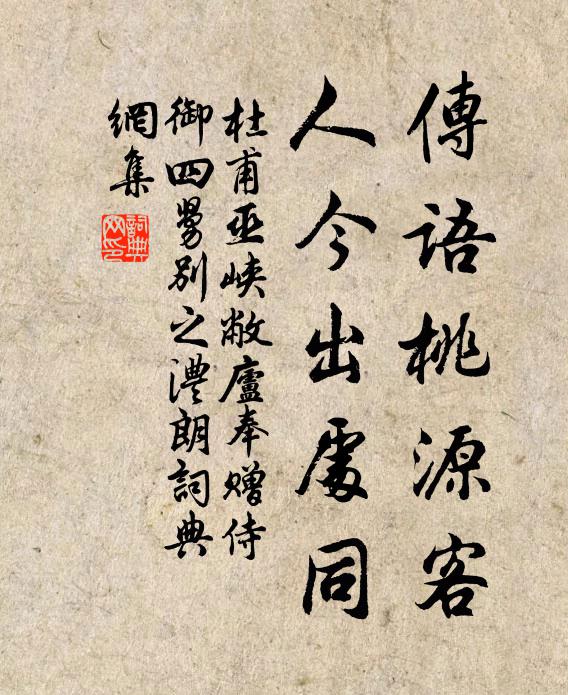 傳語桃源客
人今出處同
杜甫巫峽敝廬奉贈侍
御四舅別之澧朗詞典
網集
詞典网印